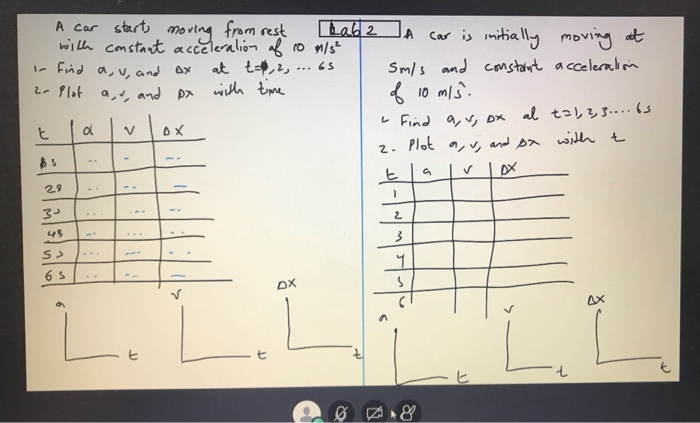 Lab 2
A car start moving from rest
with constant acceleration of 10 m/s²
1- Find a, v, and Δx at t=1,2, ... 6s
2- Plot a, v, and Δx with time
t a v Δx
1s -- -- --
2s -- -- —
3s ... --- --
4s -- ... --
5s ... -- --
6s .. -- —
a t
v t
Δx t
A car is initially moving at
5m/s and constant acceleration
of 10 m/s².
1- Find a, v, Δx at t=1,2,3....6s
2. Plot a, v, and Δx with t
t a v Δx
1
2
3
4
5
6
a t
v t
Δx t